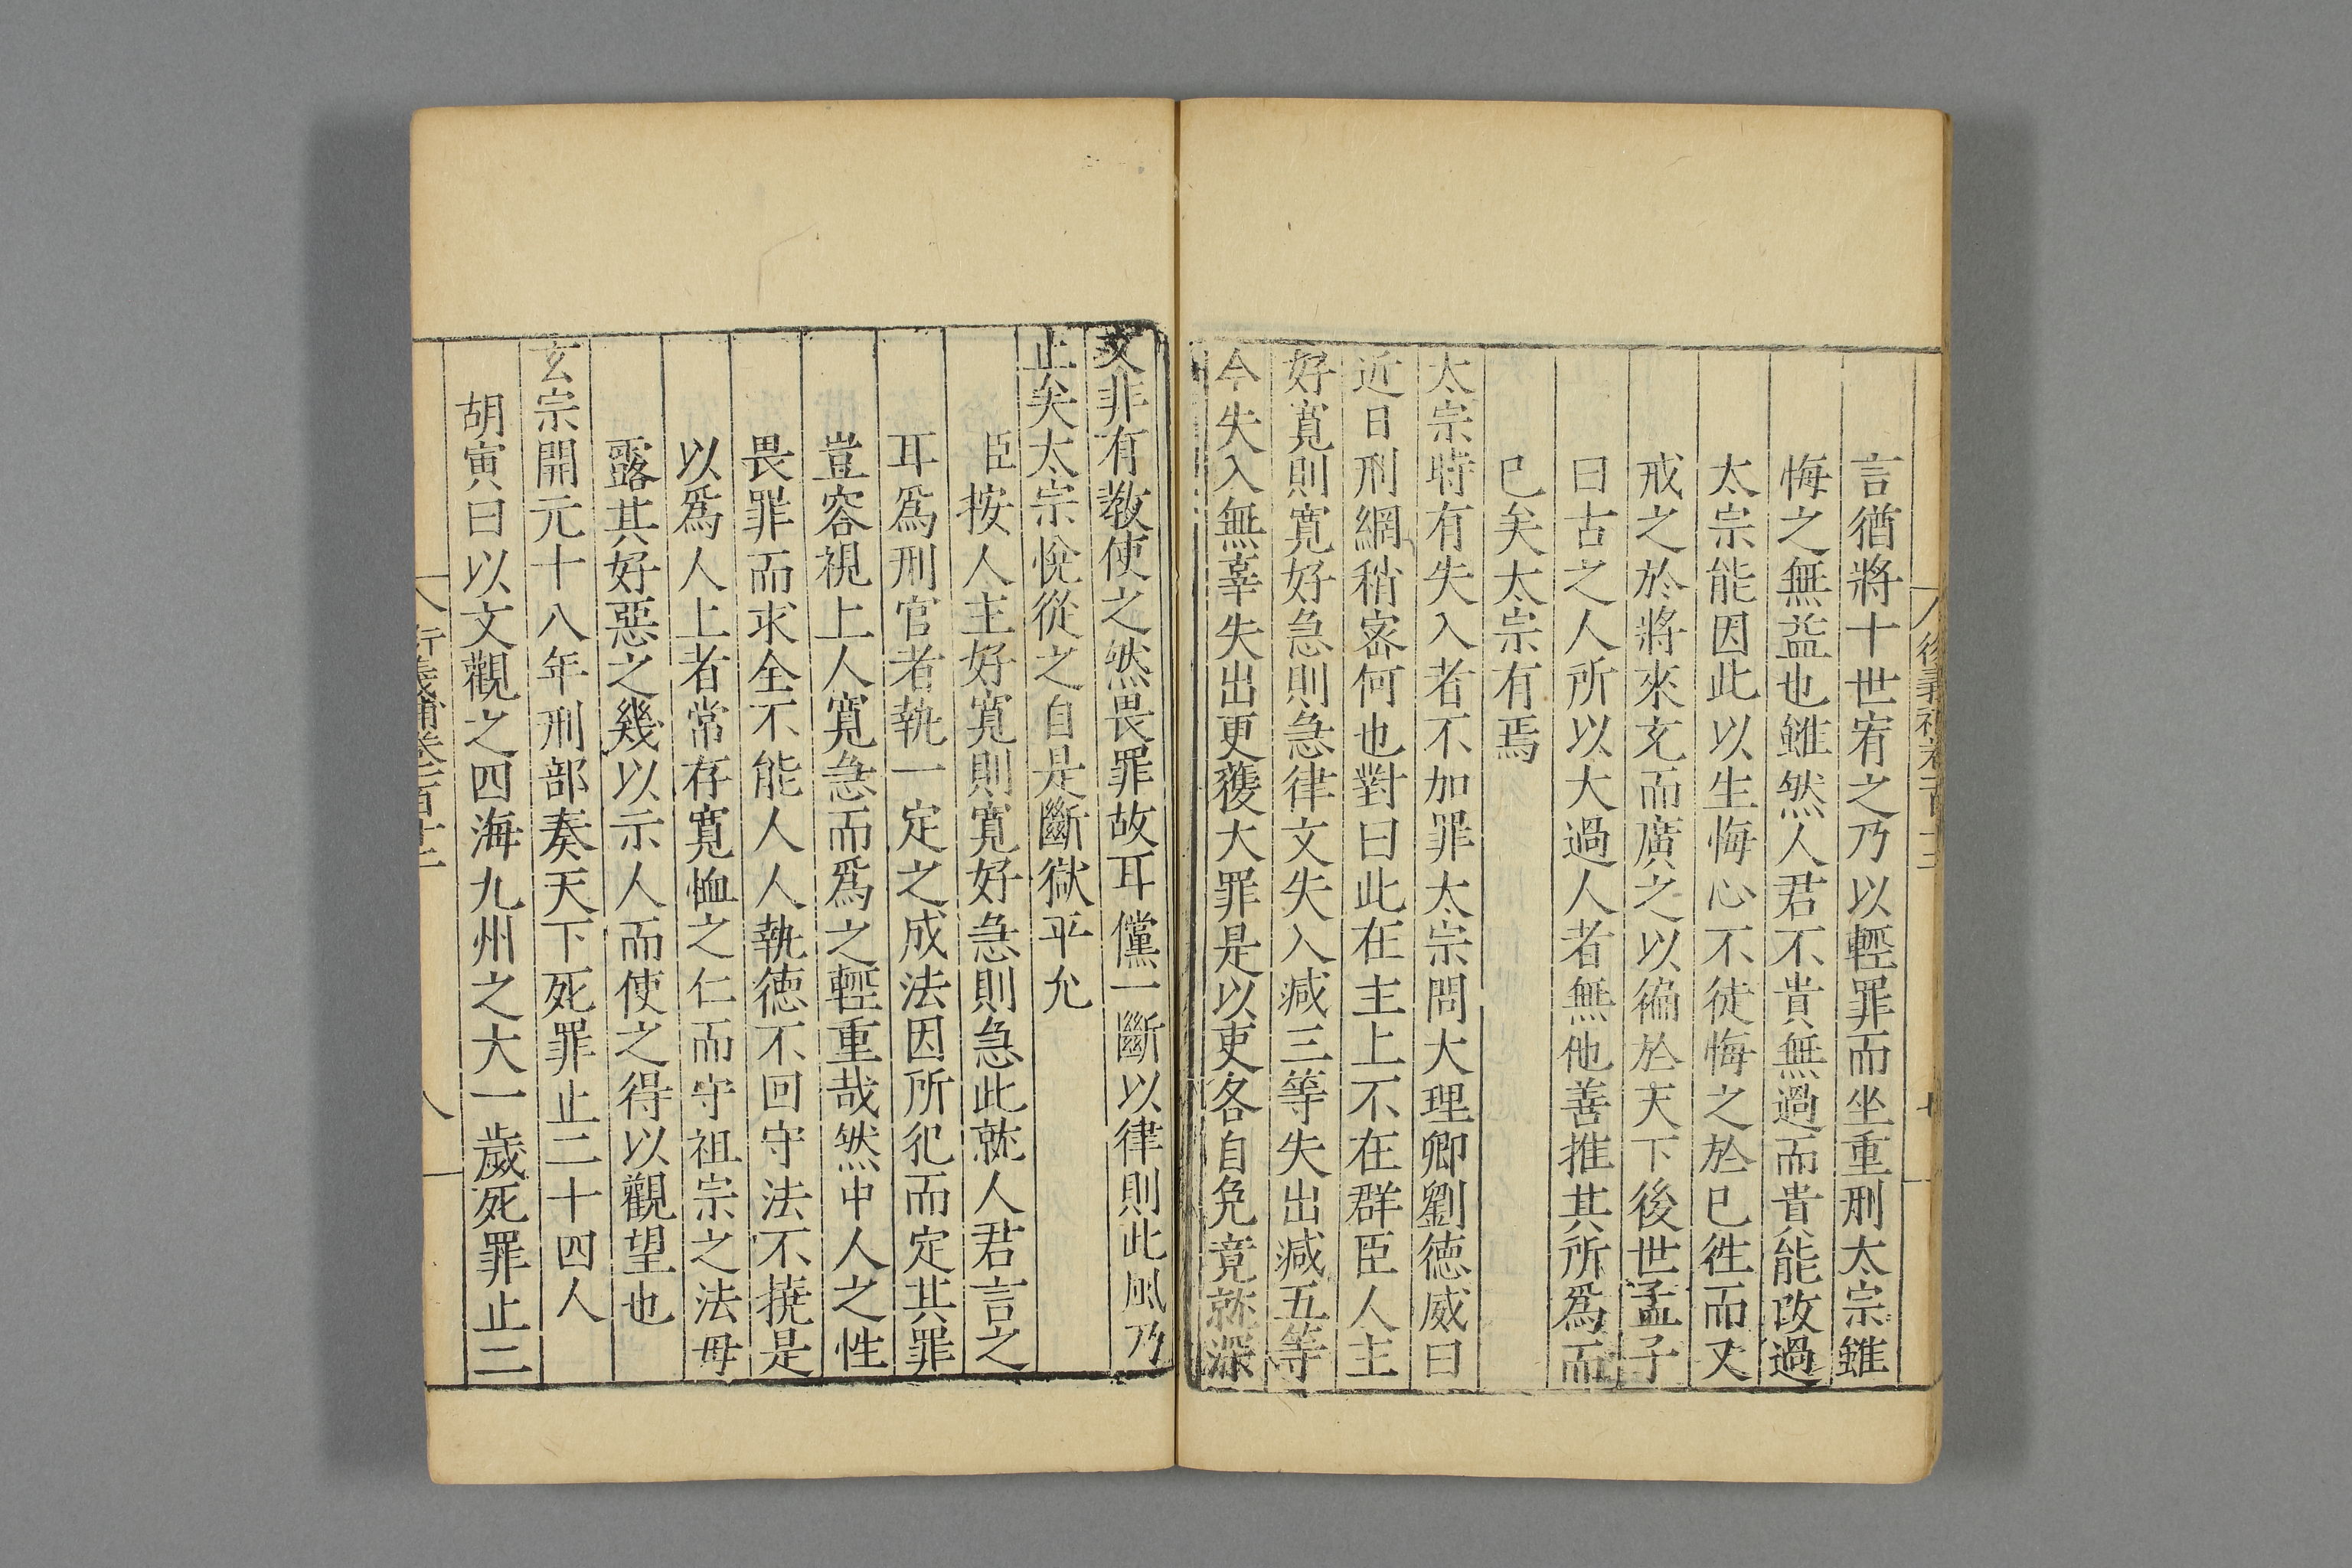 言猶將十世宥之乃以輕罪而坐重刑太宗雖
悔之無益也雖然人君不貴無過而貴能改過
太宗能因此以生悔心不徒悔之於已徃而又
戒之於將來充而廣之以徧於天下後世孟子
曰古之人所以大過人者無他善推其所爲而
已矣太宗有焉
太宗時有失入者不加罪太宗問大理卿劉德威曰
近日刑網稍密何也對曰此在主上不在群臣人主
好寛則寛好急則急律文失入減三等失出減五等
今失入無辜失出更獲大罪是以吏各自免竟就深
文非有教使之然畏罪故耳儻一斷以律則此風乃
止矣太宗悅從之自是斷獄平允
臣按人主好寛則寛好急則急此就人君言之
耳爲刑官者執一定之成法因所犯而定其罪
豈容視上人寛急而爲之輕重哉然中人之性
畏罪而求全不能人人執德不回守法不撓是
以爲人上者常存寛恤之仁而守祖宗之法毋
露其好惡之幾以示人而使之得以觀望也
玄宗開元十八年刑部奏天下死罪止二十四人
胡寅曰以文觀之四海九州之大一歲死罪止二